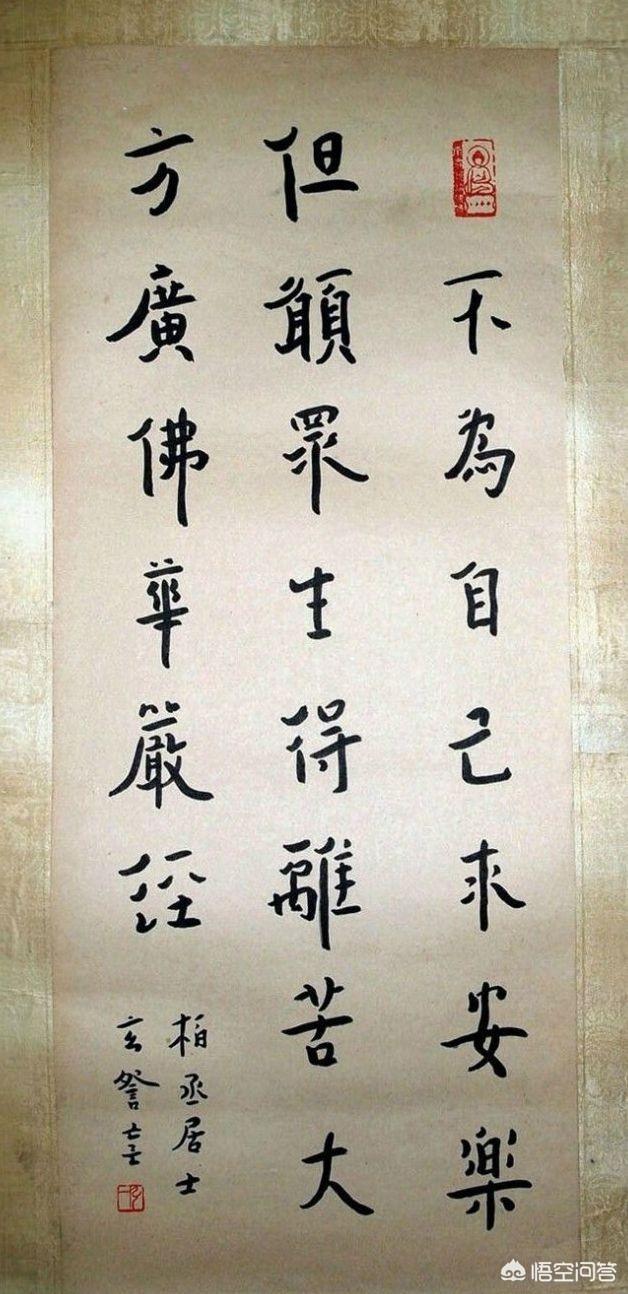 不為自己求安樂
但願眾生得離苦大
方廣佛華嚴經
柏丞居士
玄詧書
悟空问答